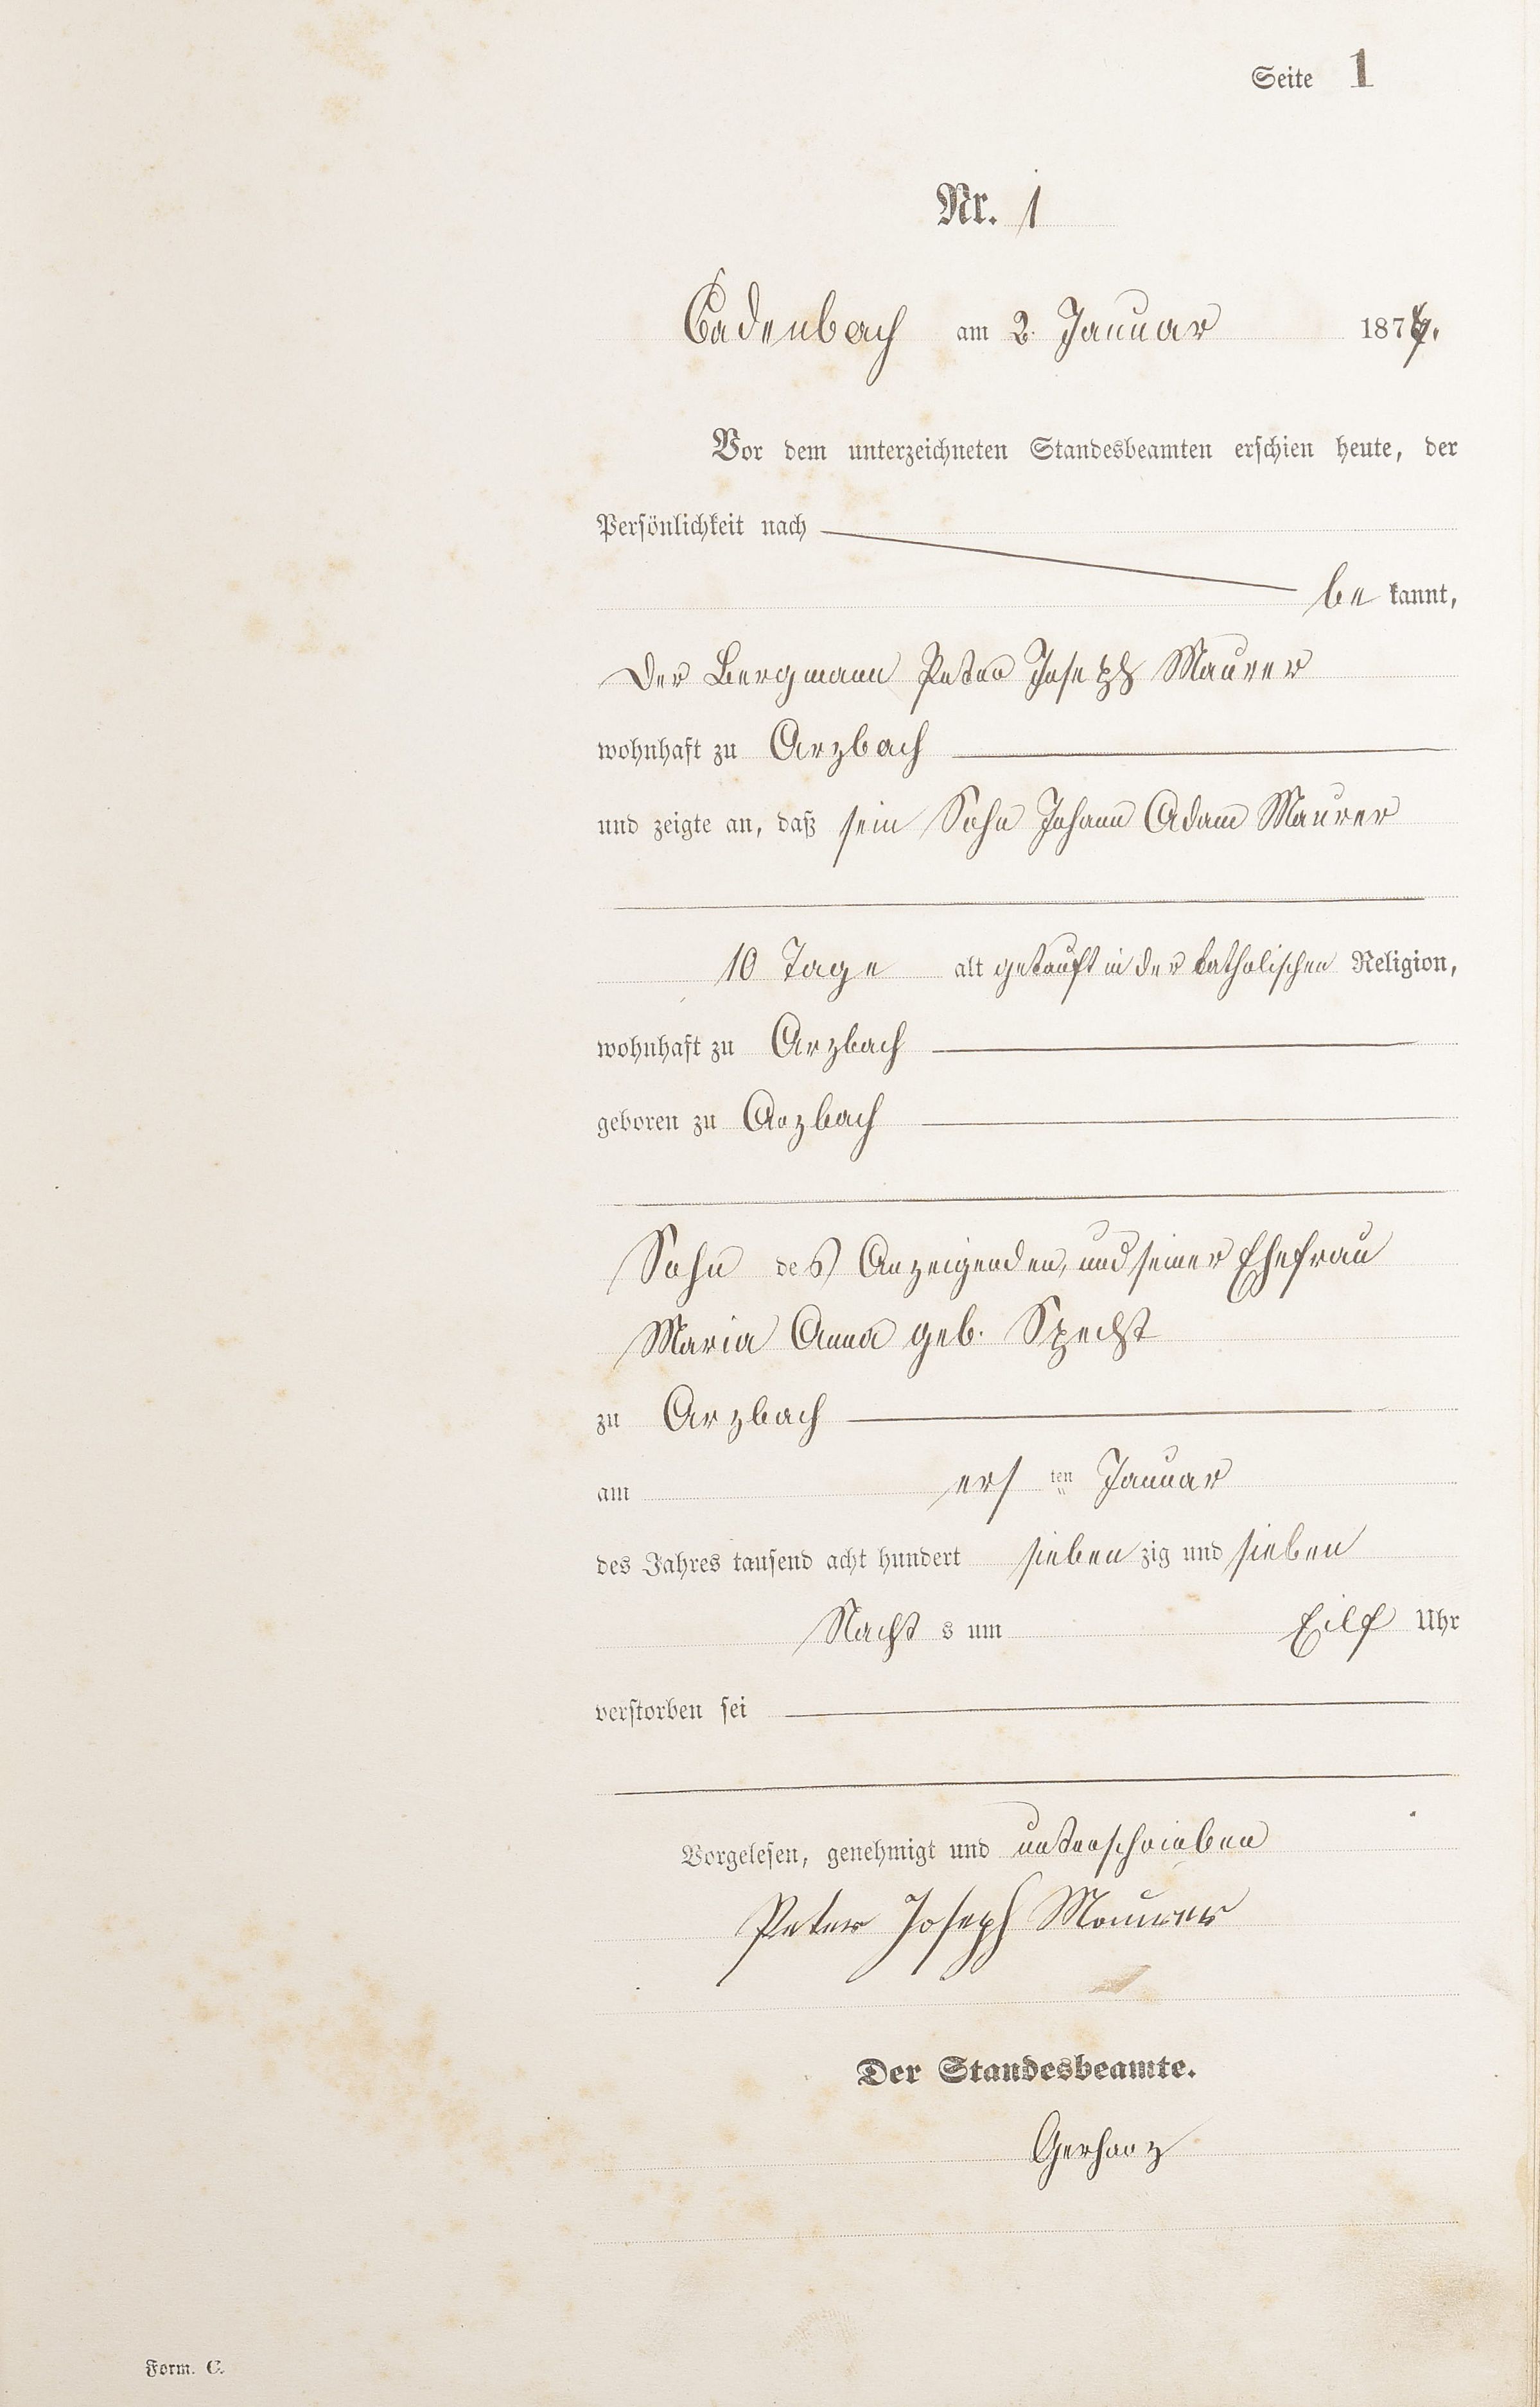 Seite 1
Nr. 1
Cadenbach am 2. Januar 1877.
Vor dem unterzeichneten Standesbeamten erschien heute, der
Persönlichkeit nach
be kannt,
der Bergmann Peter Joseph Maurer
wohnhaft zu Arzbach
und zeigte an, daß sein Sohn Johann Adam Maurer
10 Tage alt getauft in der katholischen Religion,
wohnhaft zu Arzbach
geboren zu Arzbach
Sohn des Anzeigenden, und seiner Ehefrau
Maria Anna geb. Specht
zu Arzbach
am ers ten Januar
des Jahres tausend acht hundert sieben zig und sieben
Nacht s um Eilf Uhr
verstorben sei
Vorgelesen, genehmigt und unterschrieben
Peter Joseph Maurer
Der Standesbeamte.
Gerharz
Form. C.